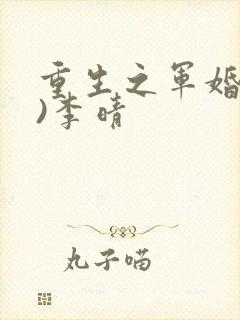 重生之军婚
)李晴
丸子喵